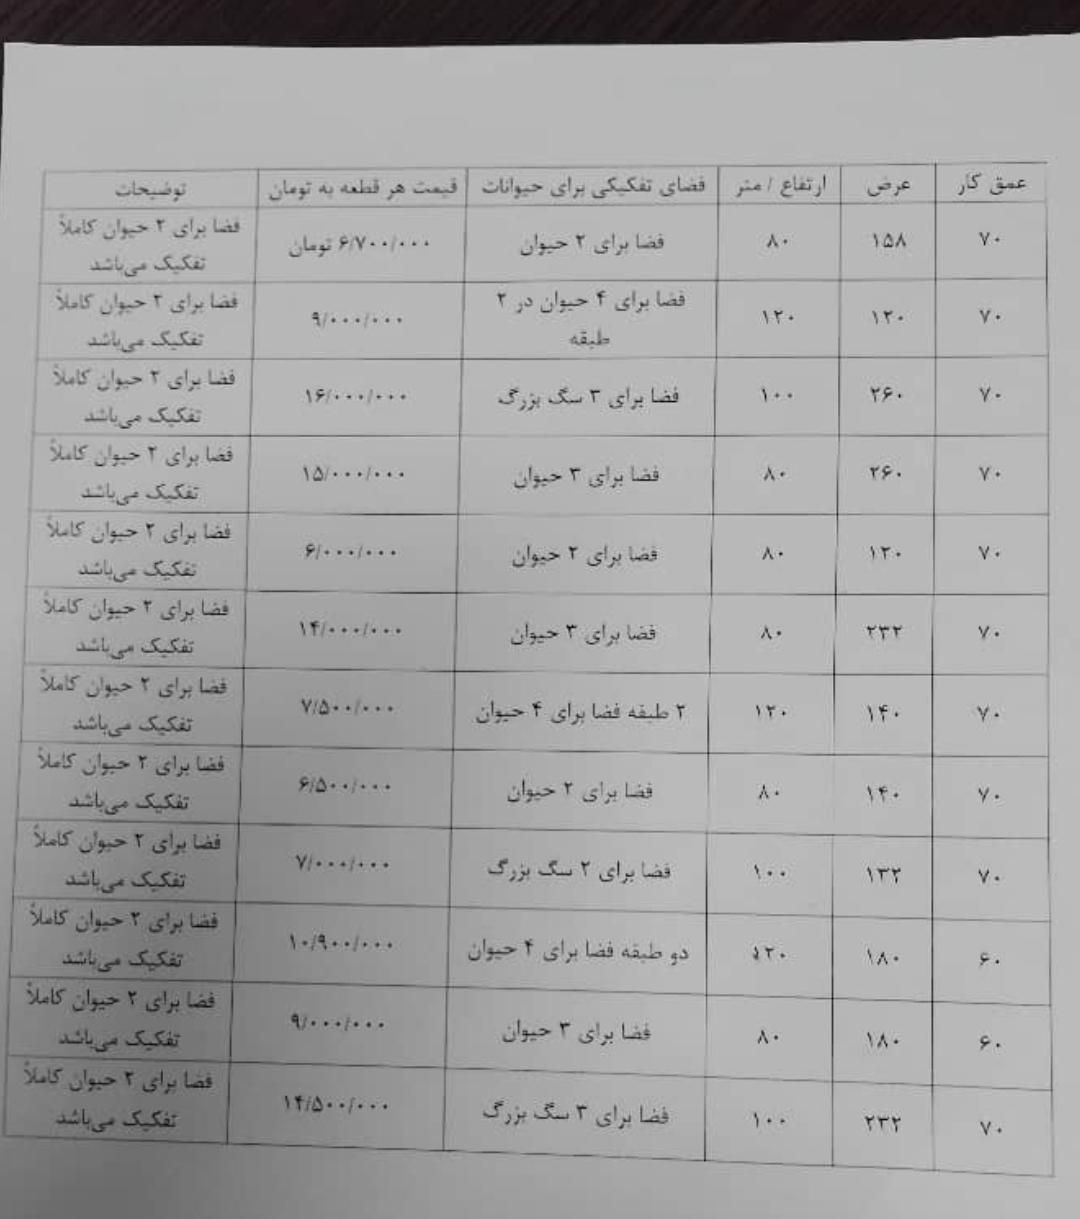 عمق کار	عرض	ارتفاع / متر	فضای تفکیکی برای حیوانات	قیمت هر قطعه به تومان	توضیحات
۷۰	۱۵۸	۸۰	فضا برای ۲ حیوان	۶/۷۰۰/۰۰۰ تومان	فضا برای ۲ حیوان کاملاً
تفکیک می‌باشد
۷۰	۱۲۰	۱۲۰	فضا برای ۴ حیوان در ۲	۹/۰۰۰/۰۰۰	فضا برای ۲ حیوان کاملاً
طبقه	تفکیک می‌باشد
۷۰	۲۶۰	۱۰۰	فضا برای ۳ سگ بزرگ	۱۶/۰۰۰/۰۰۰	فضا برای ۲ حیوان کاملاً
تفکیک می‌باشد
۷۰	۲۶۰	۸۰	فضا برای ۳ حیوان	۱۵/۰۰۰/۰۰۰	فضا برای ۲ حیوان کاملاً
تفکیک می‌باشد
۷۰	۱۲۰	۸۰	فضا برای ۲ حیوان	۶/۰۰۰/۰۰۰	فضا برای ۲ حیوان کاملاً
تفکیک می‌باشد
۷۰	۲۳۲	۸۰	فضا برای ۳ حیوان	۱۴/۰۰۰/۰۰۰	فضا برای ۲ حیوان کاملاً
تفکیک می‌باشد
۷۰	۱۴۰	۱۲۰	۲ طبقه فضا برای ۴ حیوان	۷/۵۰۰/۰۰۰	فضا برای ۲ حیوان کاملاً
تفکیک می‌باشد
۷۰	۱۴۰	۸۰	فضا برای ۲ حیوان	۶/۵۰۰/۰۰۰	فضا برای ۲ حیوان کاملاً
تفکیک می‌باشد
۷۰	۱۳۲	۱۰۰	فضا برای ۲ سگ بزرگ	۷/۰۰۰/۰۰۰	فضا برای ۲ حیوان کاملاً
تفکیک می‌باشد
۶۰	۱۸۰	۱۲۰	دو طبقه فضا برای ۴ حیوان	۱۰/۹۰۰/۰۰۰	فضا برای ۲ حیوان کاملاً
تفکیک می‌باشد
۶۰	۱۸۰	۸۰	فضا برای ۳ حیوان	۹/۰۰۰/۰۰۰	فضا برای ۲ حیوان کاملاً
تفکیک می‌باشد
۷۰	۲۳۲	۱۰۰	فضا برای ۳ سگ بزرگ	۱۴/۵۰۰/۰۰۰	فضا برای ۲ حیوان کاملاً
تفکیک می‌باشد